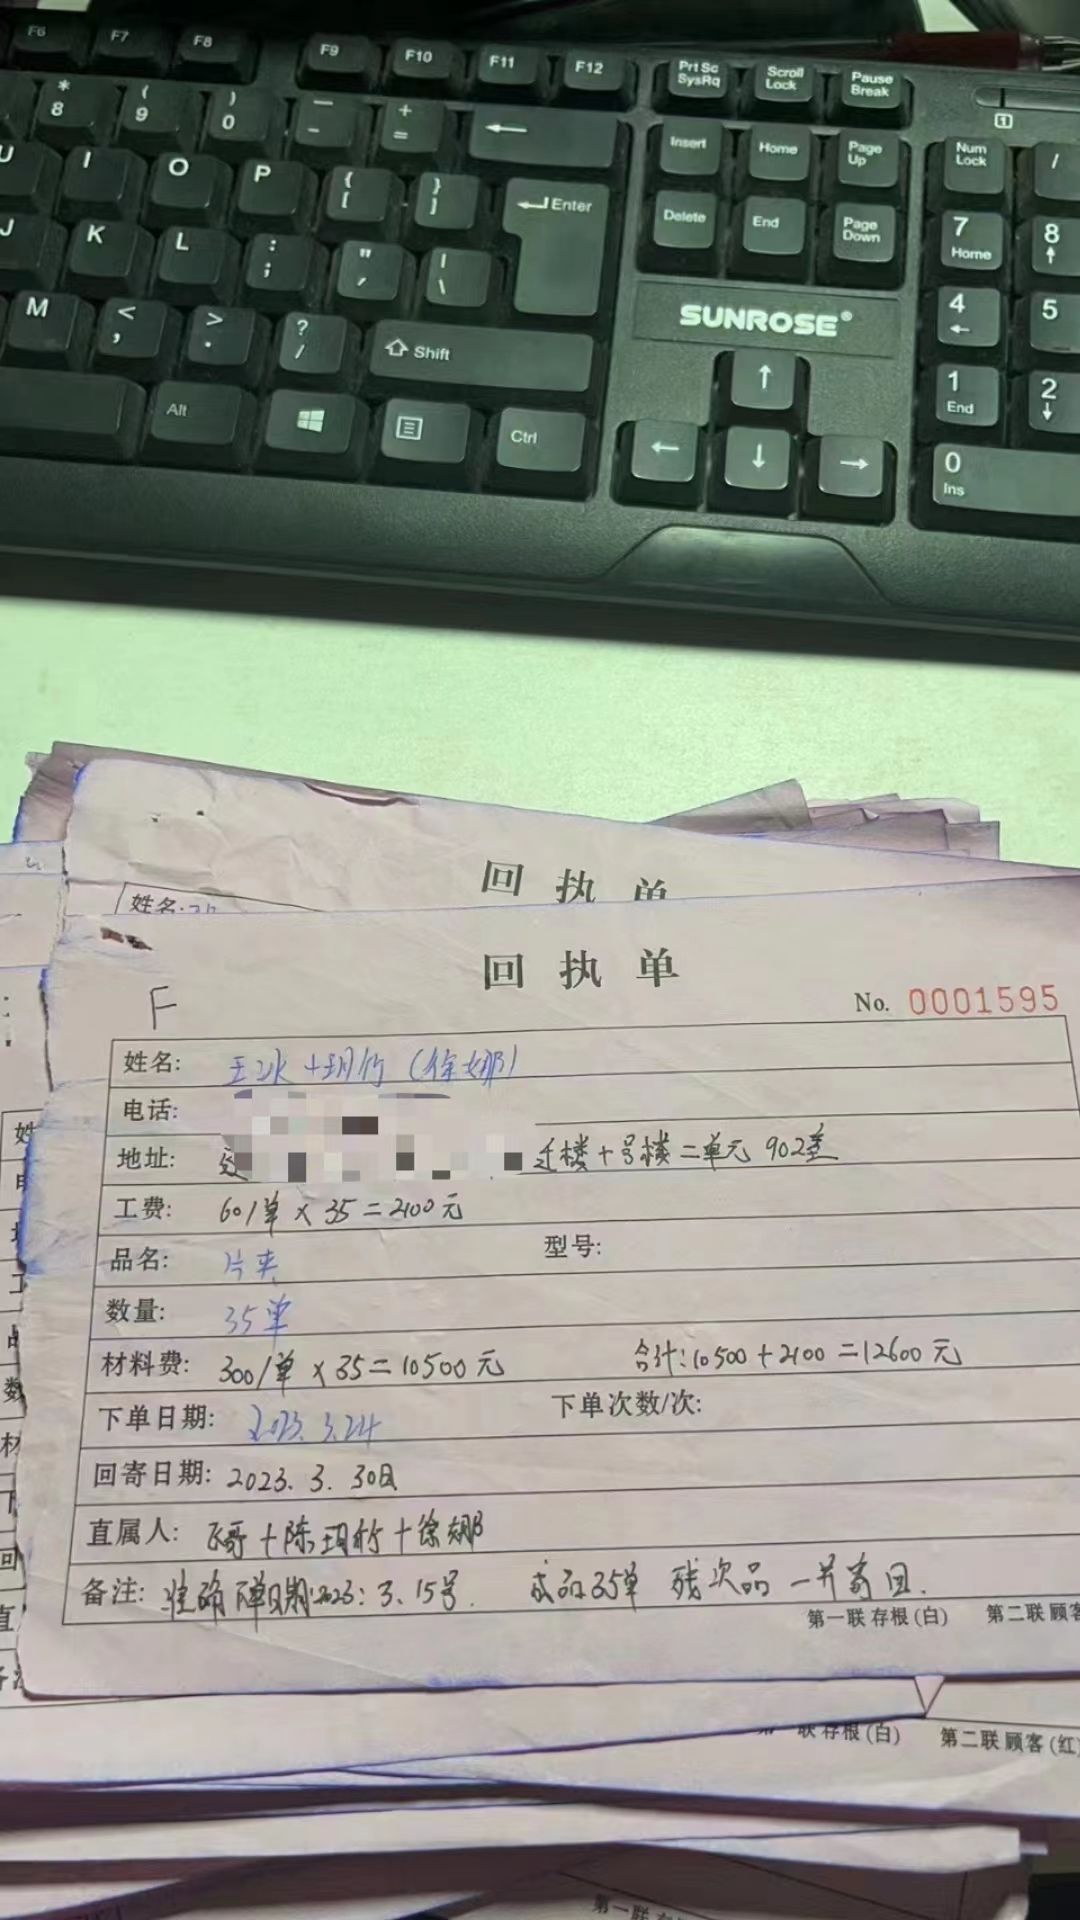 F6 F7 F8 F9 F10 F11 F12 Prt Sc SysRq Scroll Lock Pause Break
* 8 ( 9 ) 0 — - + = Insert Home Page Up Num Lock /
U I O P { [ } ] Enter Delete End Page Down 7 Home 8
J K L : ; " ' | \ SUNROSE® 4 5
M < , > . ? / Shift 1 End 2
Alt Ctrl 0 Ins
回执单
姓名:
回执单
No. 0001595
F
姓名: 王冰+玥竹(徐娜)
电话:
地址: 迁楼十号楼二单元 902室
工费: 60/单×35=2100元
品名: 片夹 型号:
数量: 35单
材料费: 300/单×35=10500元 合计:10500+2100=12600元
下单日期: 2023.3.24 下单次数/次:
回寄日期: 2023.3.30日
直属人: 飞哥+陈玥竹+徐娜
备注: 准确下单日期:2023:3.15号. 成品35单 残次品一并寄回.
第一联 存根(白) 第二联 顾客
联 存根(白) 第二联 顾客(红)
第一联